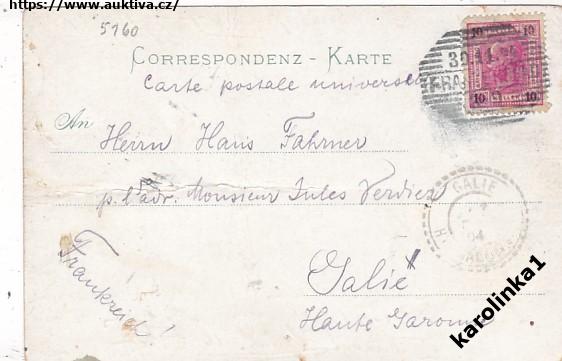 https://www.auktiva.cz/
5160
CORRESPONDENZ - KARTE
Carte postale universelle
An
Herrn Hans Fahrner
p. l'adr. Monsieur Jules Verdiez
Galié
Haute Garonne
Frankreich!
10 10
10 10
GALIE
04
karolinka1